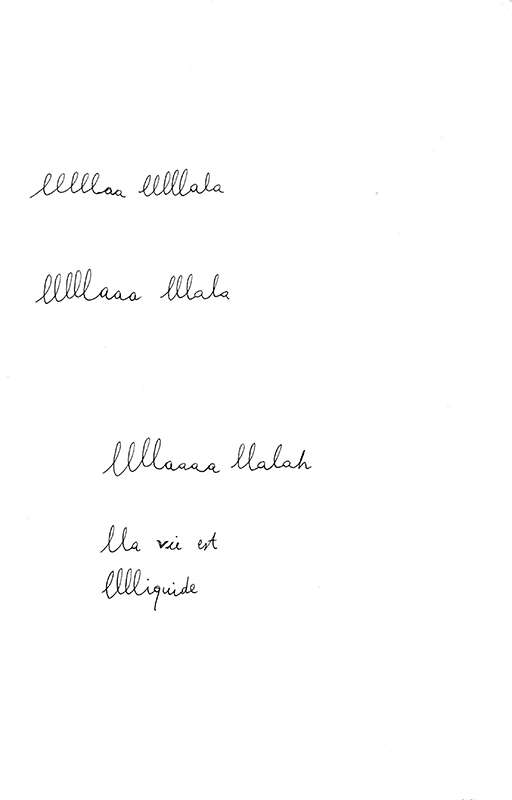 lllllaa lllllala
lllllaaa lllala
lllllaaaa llalah
llla vie est
lllliquide